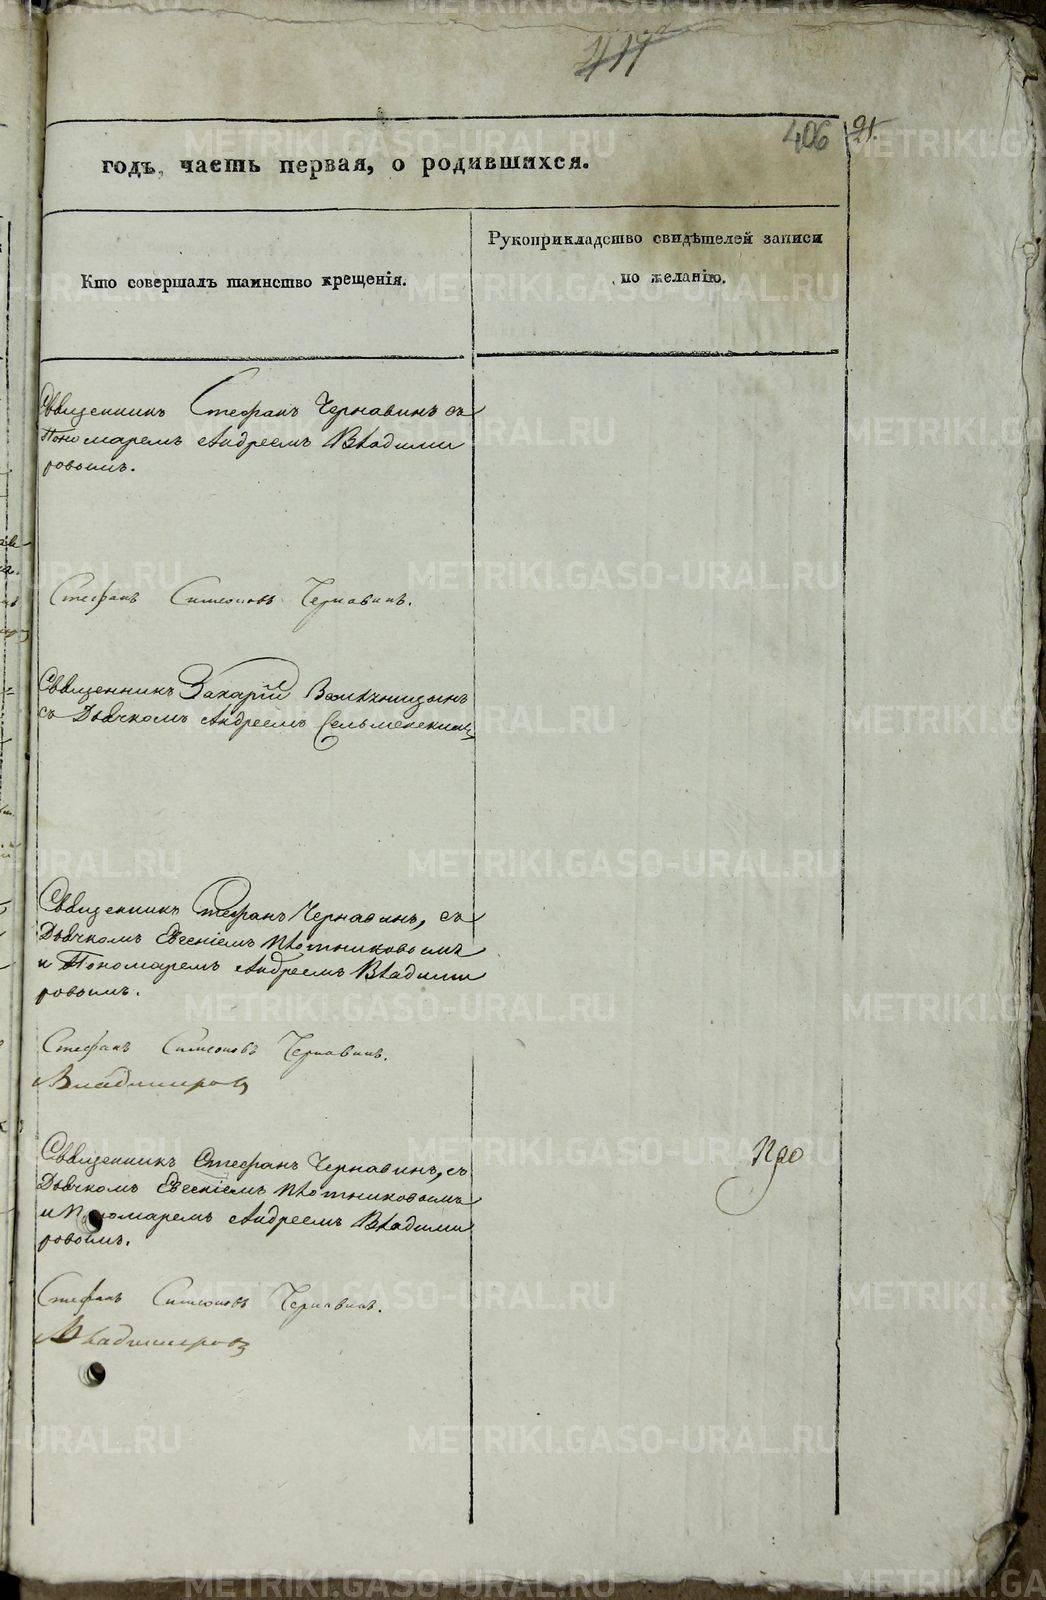 406
21.
годъ, часть первая, о родившихся.
Кто совершалъ таинство крещенія.
Рукоприкладство свидѣтелей записи
по желанію.
Священникъ Стефанъ Чернавинъ съ
Пономаремъ Андреемъ Владими
ровымъ.
Стефанъ Симеоновъ Чернавинъ.
Священникъ Захарій
съ Дьячкомъ Андреемъ
Священникъ Стефанъ Чернавинъ, съ
Дьячкомъ Евгеніемъ Плотниковымъ
и Пономаремъ Андреемъ Владими
ровымъ.
Стефанъ Симеоновъ Чернавинъ.
Владимировъ
Священникъ Стефанъ Чернавинъ, съ
Дьячкомъ Евгеніемъ Плотниковымъ
и Пономаремъ Андреемъ Владими
ровымъ.
Стефанъ Симеоновъ Чернавинъ.
Владимировъ
METRIKI.GASO-URAL.RU